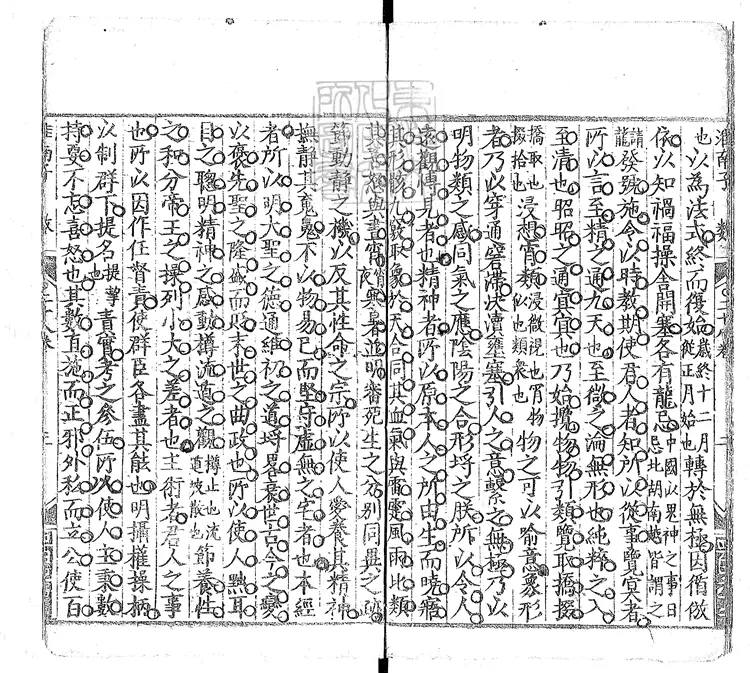 也以為法式終而復始歲終十二月從正月始也轉於無極因循倣
依以知禍福操舍開塞各有龍忌中國以鬼神之事日忌北胡南越皆謂之
請龍發號施令以時教期使君人者知所以從事覽冥者
所以言至精之通九天也至微之淪無形也純粹之入
至清也昭昭之通冥冥也乃始攬物物引類覽取撟掇
撟取也掇拾也浸想宵類浸微視也宵物似也類衆也物之可以喻意象形
者乃以穿通窘滯決瀆壅塞引人之意繫之無極乃以
明物類之感同氣之應陰陽之合形埒之朕所以令人
遠觀博見者也精神者所以原本人之所由生而曉寤
其形骸九竅取象於天合同其血氣與雷霆風雨比類
其喜怒與晝宵宵夜寒暑並明審死生之分別同異之跡
節動靜之機以反其性命之宗所以使人愛養其精神
撫靜其魂魄不以物易己而堅守虛無之宅者也本經
者所以明大聖之德通維初之道埒畧衰世古今之變
以褒先聖之隆盛而貶末世之曲政也所以使人黜耳
目之聰明精神之感動樽流遁之觀樽止也流遁披散也節養性
之和分帝王之操列小大之差者也主術者君人之事
也所以因作任督責使群臣各盡其能也明攝權操柄
以制群下提名提挈也責實考之參伍所以使人主秉數
持要不忘喜怒也其數直施而正邪外私而立公使百